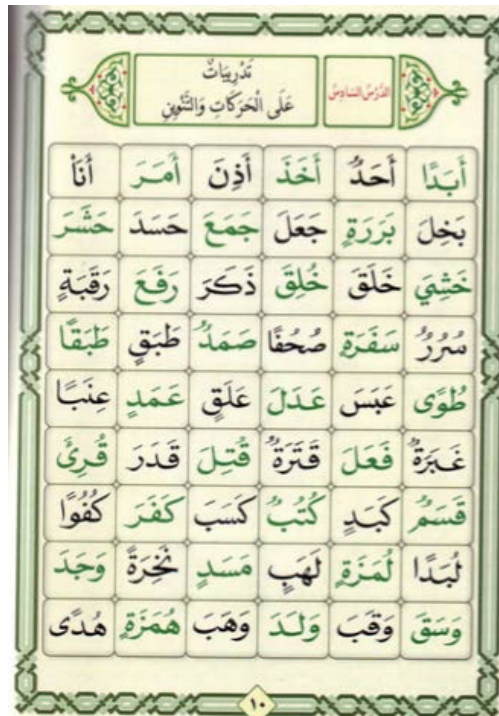 الدَّرْسُ السَّادِسُ
تَدْرِيبَاتٌ
عَلَى الْحَرَكَاتِ وَالتَّنْوِينِ
أَبَدًا أَحَدٌ أَخَذَ أَذِنَ أَمَرَ أَنَا۠
بَخِلَ بَرَرَةٍ جَعَلَ جَمَعَ حَسَدَ حَشَرَ
خَشِيَ خَلَقَ خُلِقَ ذَكَرَ رَفَعَ رَقَبَةٍ
سُرُرٌ سَفَرَةٍ صُحُفًا صَمَدٌ طَبَقٍ طَبَقًا
طُوًى عَبَسَ عَدَلَ عَلَقٍ عَمَدٍ عِنَبًا
غَبَرَةٌ فَعَلَ قَتَرَةٌ قُتِلَ قَدَرَ قُرِئَ
قَسَمٌ كَبَدٍ كُتُبٌ كَسَبَ كَفَرَ كُفُوًا
لُبَدًا لُمَزَةٍ لَهَبٍ مَسَدٍ نَخِرَةً وَجَدَ
وَسَقَ وَقَبَ وَلَدَ وَهَبَ هُمَزَةٍ هُدًى
١٠